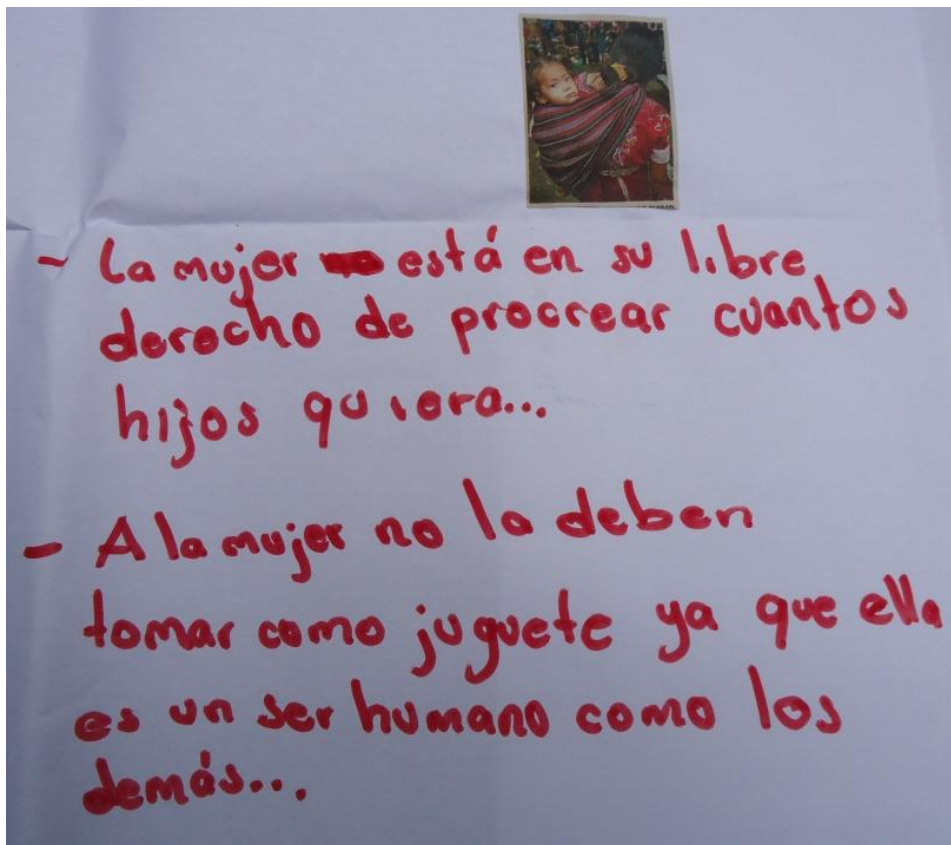 - La mujer está en su libre
derecho de procrear cuantos
hijos quiera...
- A la mujer no la deben
tomar como juguete ya que ella
es un ser humano como los
demás...